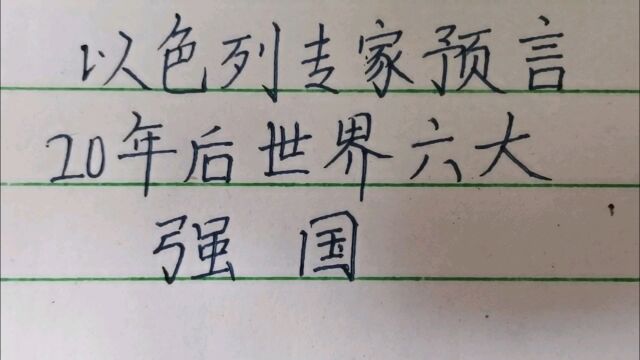 以色列专家预言
20年后世界六大
强国